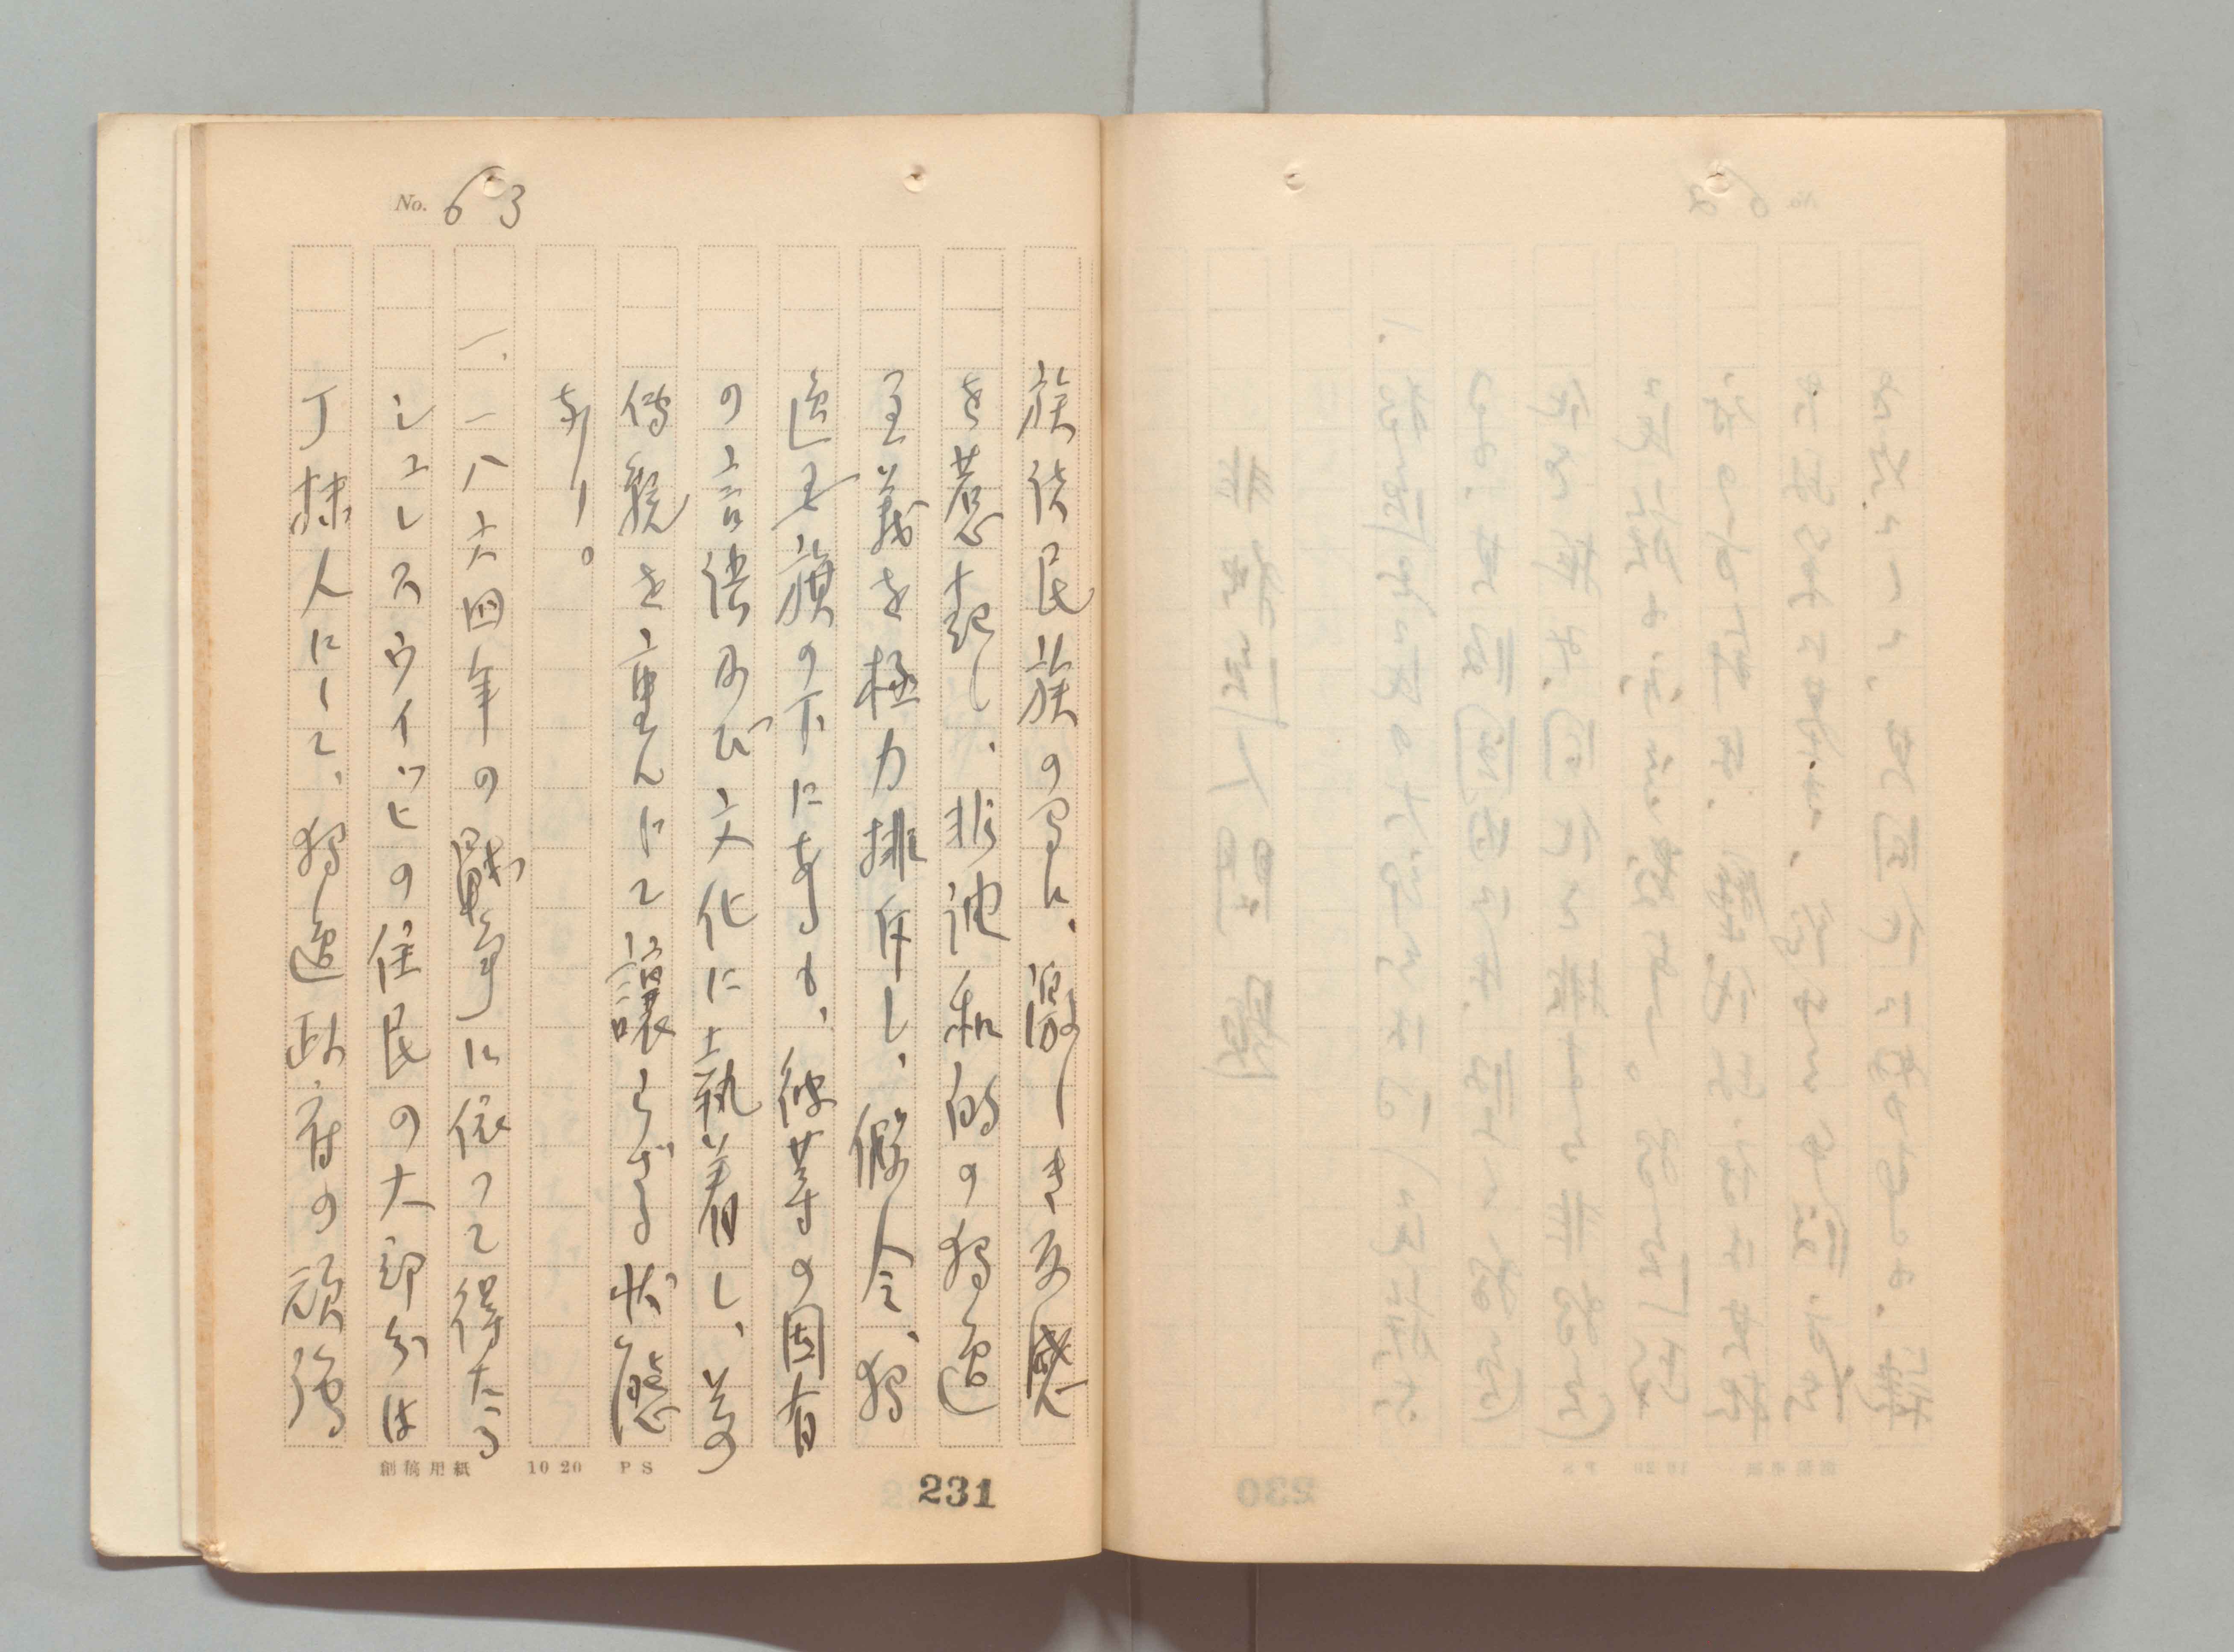 No. 63
族他民族の為に、激しき反感
を惹起し、非融和的の独逸
主義を極力排斥し、仮令、独
逸国旗の下にあるも、彼等の固有
の言語及び文化に執着し、其の
伝統を重んじて譲らざる状態
なり。
一、一八六四年の戦争に依って得たる
シュレスウイッヒの住民の大部分は
丁抹人にして、独逸政府の頑強
創稿用紙 10 20 PS
231